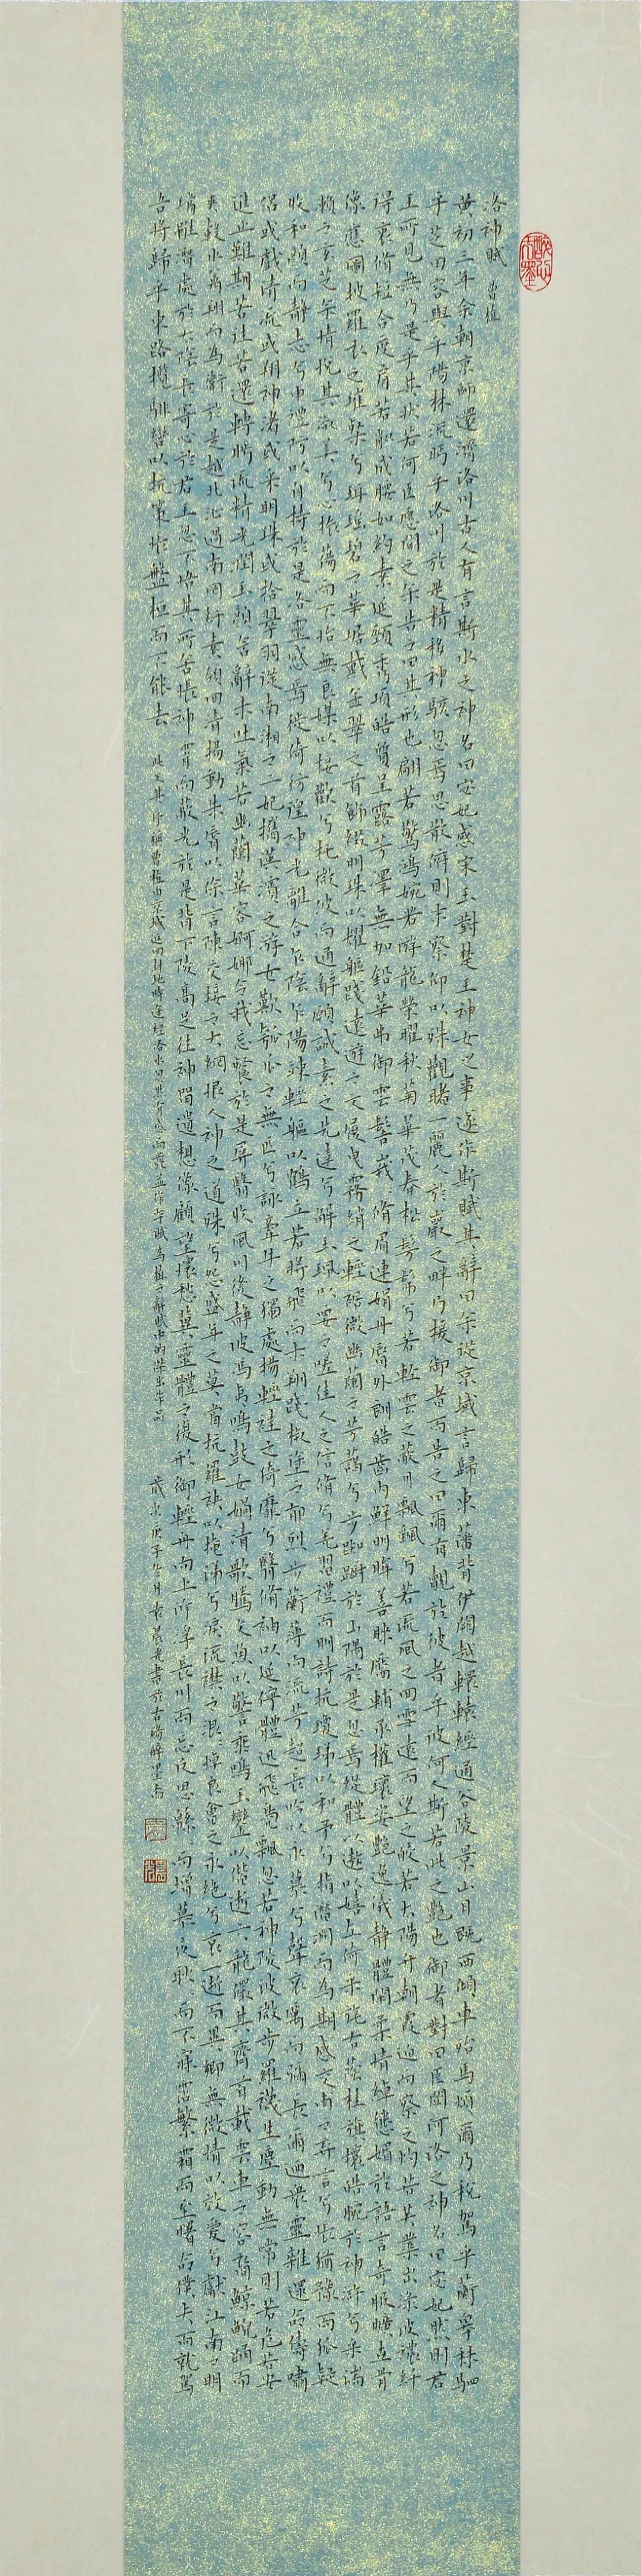 洛神賦 曹植
黄初三年余朝京師還濟洛川古人有言斯水之神名曰宓妃感宋玉對楚王神女之事遂作斯賦其辭曰余從京域言歸東藩背伊闕越轘轅經通谷陵景山日既西傾車殆馬煩爾乃稅駕乎蘅皋秣駟
乎芝田容與乎陽林流眄乎洛川於是精移神駭忽焉思散俯則未察仰以殊觀睹一麗人於巖之畔乃援御者而告之曰爾有覿於彼者乎彼何人斯若此之艷也御者對曰臣聞河洛之神名曰宓妃然則君
王所見無乃是乎其狀若何臣願聞之余告之曰其形也翩若驚鴻婉若游龍榮曜秋菊華茂春松髣髴兮若輕雲之蔽月飄颻兮若流風之回雪遠而望之皎若太陽升朝霞迫而察之灼若芙蕖出淥波襛纖
得衷脩短合度肩若削成腰如約素延頸秀項皓質呈露芳澤無加鉛華弗御雲髻峩峩脩眉連娟丹唇外朗皓齒内鮮明眸善睞靨輔承權瓌姿艷逸儀靜體閑柔情綽態媚於語言奇服曠世骨
像應圖披羅衣之璀粲兮珥瑤碧之華琚戴金翠之首飾綴明珠以耀軀踐遠遊之文履曳霧綃之輕裾微幽蘭之芳藹兮步踟躕於山隅於是忽焉縱體以遨以嬉左倚采旄右蔭桂旗攘皓腕於神滸兮采湍
瀨之玄芝余情悅其淑美兮心振蕩而不怡無良媒以接歡兮托微波而通辭願誠素之先達兮解玉珮以要之嗟佳人之信脩兮羌習禮而明詩抗瓊珶以和予兮指潛淵而為期感交甫之弃言兮悵猶豫而狐疑
收和顔而靜志兮申禮防以自持於是洛靈感焉徙倚彷徨神光離合乍陰乍陽竦輕軀以鶴立若將飛而未翔踐椒塗之郁烈步蘅薄而流芳超長吟以永慕兮聲哀厲而彌長爾迺衆靈雜遝命儔嘯
侣或戲清流或翔神渚或采明珠或拾翠羽從南湘之二妃攜漢濱之游女歎匏瓜之無匹兮詠牽牛之獨處揚輕袿之倚靡兮翳脩袖以延佇體迅飛鳧飄忽若神陵波微步羅襪生塵動無常則若危若安
進止難期若往若還轉眄流精光潤玉顔含辭未吐氣若幽蘭華容婀娜令我忘餐於是屏翳收風川后静波馮夷鳴鼓女媧清歌騰文魚以警乘鳴玉鑾以偕逝六龍儼其齊首載雲車之容裔鯨鯢踊而
夾轂水禽翔而為衛於是越北沚過南岡紆素領回清揚動朱唇以徐言陳交接之大綱恨人神之道殊兮怨盛年之莫當抗羅袂以掩涕兮淚流襟之浪浪悼良會之永绝兮哀一逝而異鄉無微情以效愛兮獻江南之明
璫雖潛處於太陰長寄心於君王忽不悟其所舍悵神宵而蔽光於是背下陵高足往神留遺想像顧望懷愁冀靈體之復形御輕舟而上溯浮長川而忘反思緜緜而增慕夜耿耿而不寐霑繁霜而至曙命僕夫而就駕
吾將歸乎東路攬騑轡以抗策悵盤桓而不能去 歲次庚子冬月